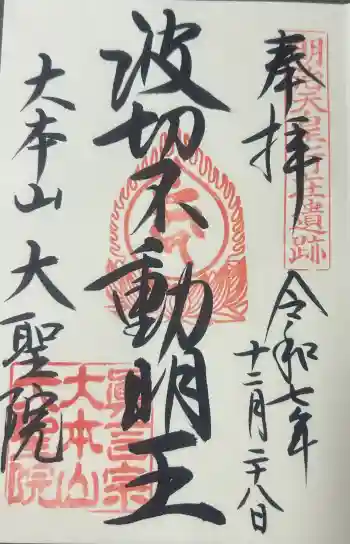 奉拝
明治天皇行在遺跡
令和七年
十二月二十八日
波切不動明王
大本山 大聖院
眞言宗
大本山
大聖院